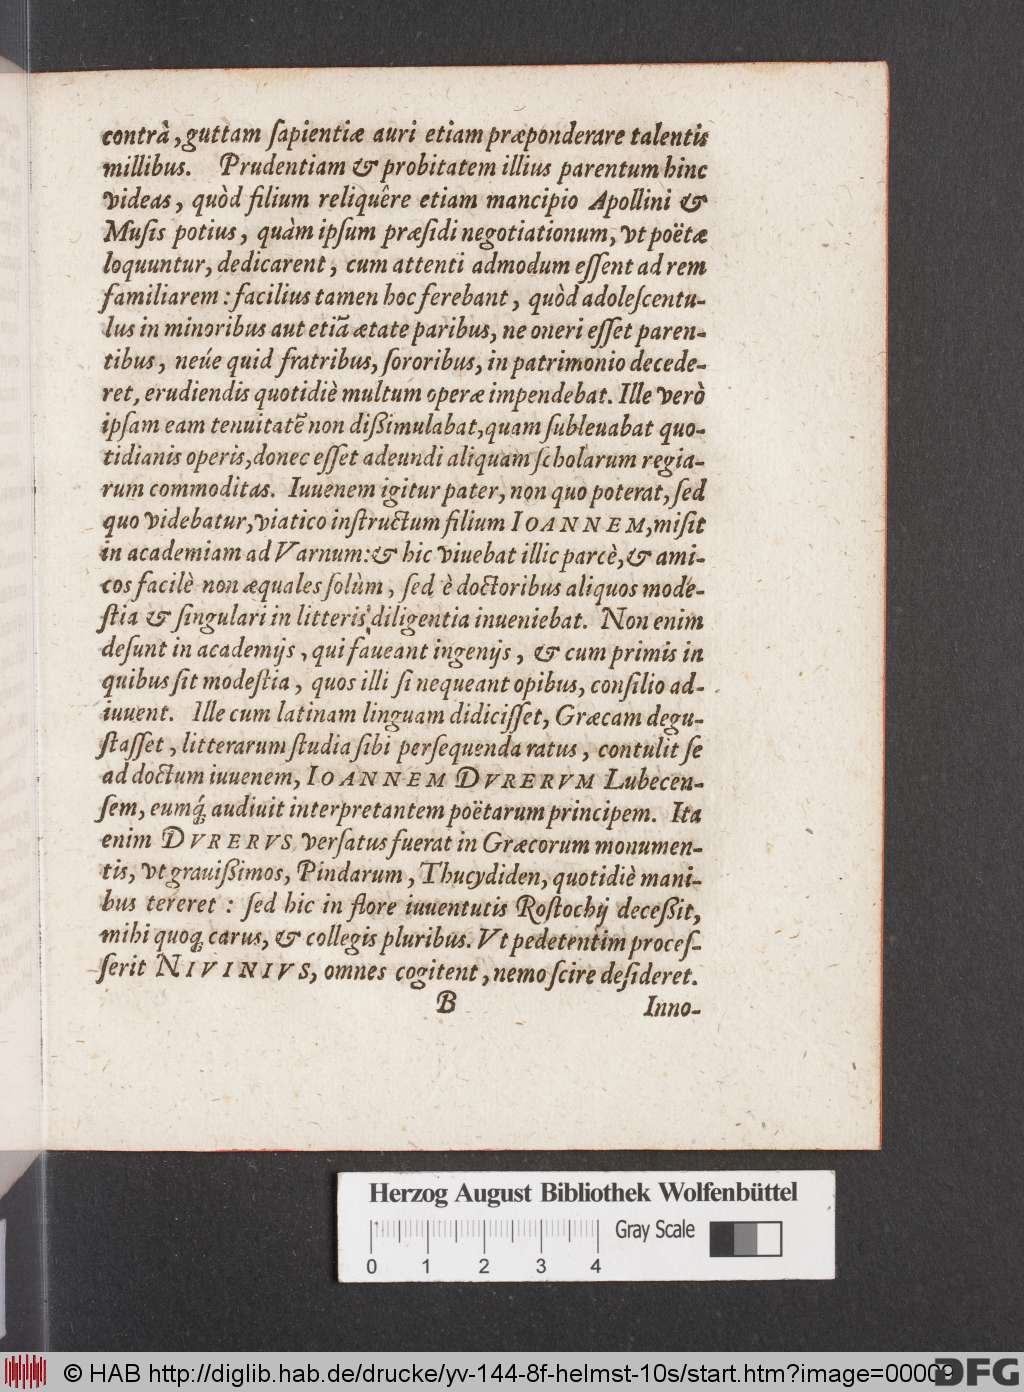 contrà, guttam ſapientiæ auri etiam præponderare talentis
millibus. Prudentiam & probitatem illius parentum hinc
videas, quòd filium reliquêre etiam mancipio Apollini &
Muſis potius, quàm ipſum præſidi negotiationum, vt poëtæ
loquuntur, dedicarent, cum attenti admodum eſſent ad rem
familiarem: facilius tamen hoc ferebant, quòd adoleſcentu-
lus in minoribus aut etiã ætate paribus, ne oneri eſſet paren-
tibus, neúe quid fratribus, ſororibus, in patrimonio decede-
ret, erudiendis quotidiè multum operæ impendebat. Ille verò
ipſam eam tenuitatẽ non dißimulabat, quam ſubleuabat quo-
tidianis operis, donec eſſet adeundi aliquam ſcholarum regia-
rum commoditas. Iuuenem igitur pater, non quo poterat, ſed
quo videbatur, viatico inſtructum filium IOANNEM, miſit
in academiam ad Varnum: & hic viuebat illic parcè, & ami-
cos facilè non æquales ſolùm, ſed è doctoribus aliquos mode-
ſtia & ſingulari in litteris diligentia inueniebat. Non enim
deſunt in academijs, qui faueant ingenijs, & cum primis in
quibus ſit modeſtia, quos illi ſi nequeant opibus, conſilio ad-
iuuent. Ille cum latinam linguam didiciſſet, Græcam degu-
ſtaſſet, litterarum ſtudia ſibi perſequenda ratus, contulit ſe
ad doctum iuuenem, IOANNEM DVRERVM Lubecen-
ſem, eumq́; audiuit interpretantem poëtarum principem. Ita
enim DVRERVS verſatus fuerat in Græcorum monumen-
tis, vt grauißimos, Pindarum, Thucydiden, quotidiè mani-
bus tereret: ſed hic in flore iuuentutis Roſtochij deceßit,
mihi quoq; carus, & collegis pluribus. Vt pedetentim proceſ-
ſerit NIVINIVS, omnes cogitent, nemo ſcire deſideret.
B Inno-
Herzog August Bibliothek Wolfenbüttel
Gray Scale
0 1 2 3 4
© HAB http://diglib.hab.de/drucke/yv-144-8f-helmst-10s/start.htm?image=00009
DFG